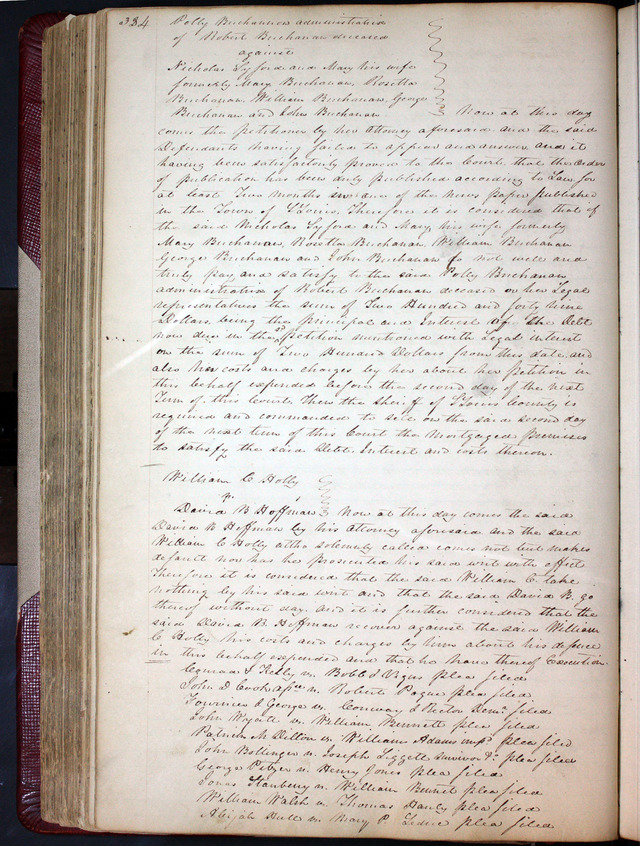 384
Polly Buchannon administratrix
of Robert Buchanan deceased
against
Nicholas Syford and Mary his wife
formerly Mary Buchanan, Rosetta
Buchanan, William Buchanan, George
Buchanan and John Buchanan. Now at this day
comes the petitioner by her attorney aforesaid and the said
Defendants having failed to appear and answer and it
having been satisfactorily proved to the Court that the order
of publication has been duly published according to Law for
at least Two months in one of the news papers published
in the Town of St Louis, Therefore it is considered that if
the said Nicholas Syford and Mary his wife formerly
Mary Buchanan, Rosetta Buchanan, William Buchanan
George Buchanan and John Buchanan do not well and
truly pay and satisfy to the said Polly Buchanan
administratrix of Robert Buchanan deceased or her Legal
representatives the sum of Two Hundred and forty nine
Dollars, being the principal and Interest of the Debt
now due in the sd petition mentioned with Legal interest
on the sum of Two Hundred Dollars from this date and
also her costs and charges by her about her petition in
this behalf expended before the second day of the next
Term of this Court. Then the Sheriff of St Louis County is
required and commanded to sell on the said second day
of the next term of this Court the Mortgaged premises
to satisfy the said Debt. Interest and costs thereon.
William C Holly
v.
David B Hoffman Now at this day comes the said
David B Hoffman by his attorney aforesaid and the said
William C Holly altho solemnly called comes not but makes
default nor has he prosecuted his said writ with effect
Therefore it is considered that the said William C. take
nothing by his said writ and that the said David B. go
thereof without day. and it is further considered that the
said David B Hoffman recover against the said William
C Holly his costs and charges by him about his defence
in this behalf expended and that he have thereof Execution.
Kelly v. Bobb & plea filed
John D Cook v. Robert plea filed
& George v. Conway & Rector filed
John Wyatt v. William Bennett plea filed
Patrick M Dillon v. William Adams plea filed
John Bollinger v. Joseph Liggett plea filed
George Pitzer v. Henry Jones plea filed
Jonas Stanbery v. William plea filed
William Walsh v. Thomas Hanly plea filed
Abijah Hull v. Mary P. Leduc plea filed